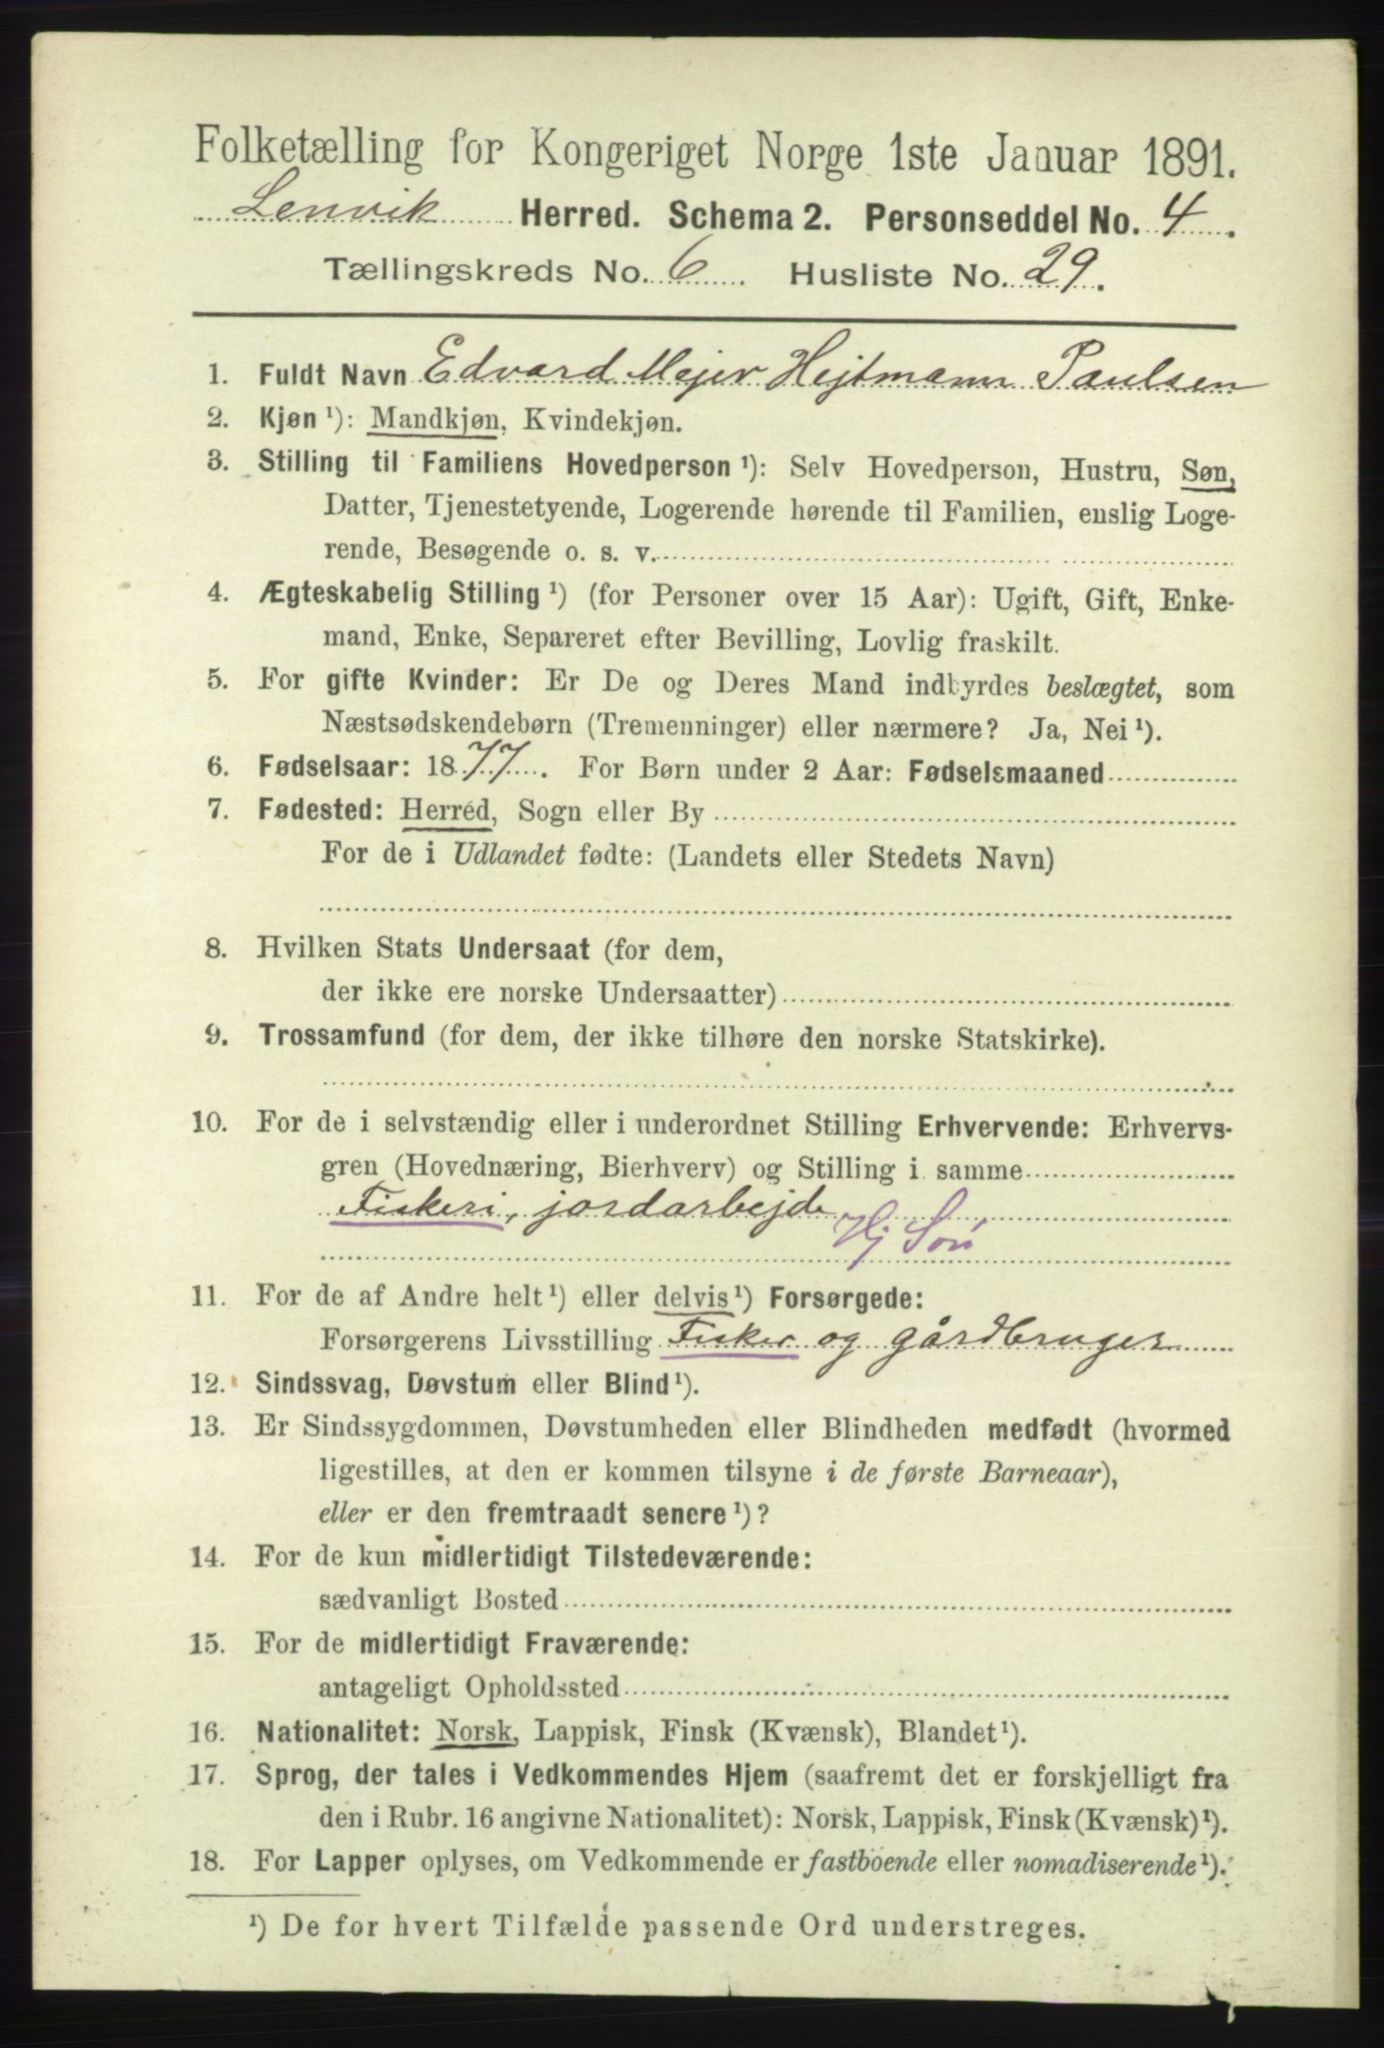 Folketælling for Kongeriget Norge 1ste Januar 1891.
Lenvik Herred. Schema 2. Personseddel No. 4.
Tællingskreds No. 6. Husliste No. 29.
1. Fuldt Navn Edvard Mejer Hejtmann Paulsen
2. Kjøn ¹): Mandkjøn, Kvindekjøn.
3. Stilling til Familiens Hovedperson ¹): Selv Hovedperson, Hustru, Søn,
Datter, Tjenestetyende, Logerende hørende til Familien, enslig Loge-
rende, Besøgende o. s. v.
4. Ægteskabelig Stilling ¹) (for Personer over 15 Aar): Ugift, Gift, Enke-
mand, Enke, Separeret efter Bevilling, Lovlig fraskilt.
5. For gifte Kvinder: Er De og Deres Mand indbyrdes beslægtet, som
Næstsødskendebørn (Tremenninger) eller nærmere? Ja, Nei ¹).
6. Fødselsaar: 1877. For Børn under 2 Aar: Fødselsmaaned
7. Fødested: Herred, Sogn eller By
For de i Udlandet fødte: (Landets eller Stedets Navn)
8. Hvilken Stats Undersaat (for dem,
der ikke ere norske Undersaatter)
9. Trossamfund (for dem, der ikke tilhøre den norske Statskirke).
10. For de i selvstændig eller i underordnet Stilling Erhvervende: Erhvervs-
gren (Hovednæring, Bierhverv) og Stilling i samme
Fiskeri, jordarbejde
Hj Søn
11. For de af Andre helt ¹) eller delvis ¹) Forsørgede:
Forsørgerens Livsstilling Fisker og gårdbruger
12. Sindssvag, Døvstum eller Blind ¹).
13. Er Sindssygdommen, Døvstumheden eller Blindheden medfødt (hvormed
ligestilles, at den er kommen tilsyne i de første Barneaar),
eller er den fremtraadt senere ¹)?
14. For de kun midlertidigt Tilstedeværende:
sædvanligt Bosted
15. For de midlertidigt Fraværende:
antageligt Opholdssted
16. Nationalitet: Norsk, Lappisk, Finsk (Kvænsk), Blandet ¹).
17. Sprog, der tales i Vedkommendes Hjem (saafremt det er forskjelligt fra
den i Rubr. 16 angivne Nationalitet): Norsk, Lappisk, Finsk (Kvænsk) ¹).
18. For Lapper oplyses, om Vedkommende er fastboende eller nomadiserende ¹).
¹) De for hvert Tilfælde passende Ord understreges.